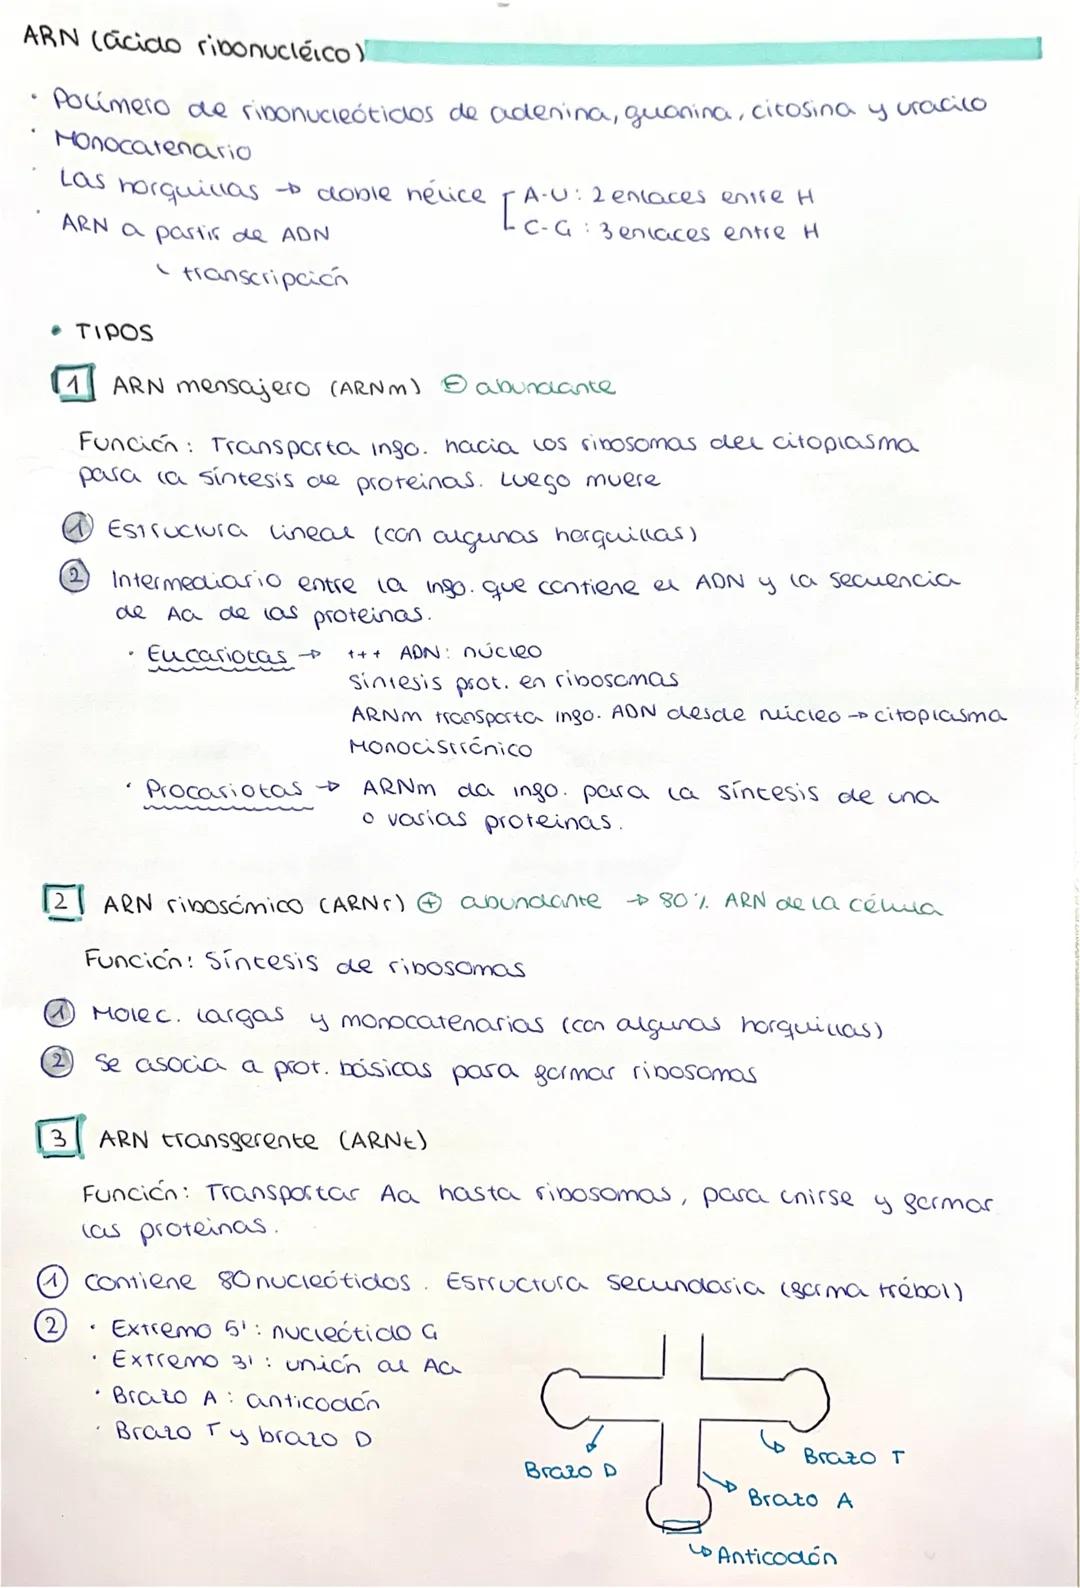 ARN (ácido ribonucléico)
· Polímero de ribonucleótidos de adenina, guanina, citosina y uracilo
· Monocatenario
· Las horquillas → doble hélice [ A-U: 2 enlaces entre H
C-G: 3 enlaces entre H
· ARN a partir de ADN
transcripción
• TIPOS
1 ARN mensajero (ARNm) ⊖ abundante
Función: Transporta info. hacia los ribosomas del citoplasma
para la síntesis de proteinas. Luego muere
① Estructura lineal (con algunas horquillas)
② Intermediario entre la info. que contiene el ADN y la secuencia
de Aa de las proteinas.
· Eucariotas → +++ ADN: núcleo
Síntesis prot. en ribosomas
ARNm transporta info. ADN desde núcleo → citoplasma
Monocistrónico
· Procariotas → ARNm da info. para la síntesis de una
o varias proteinas.
2 ARN ribosómico (ARNr) ⊕ abundante → 80% ARN de la célula
Función: Síntesis de ribosomas
① Molec. largas y monocatenarias (con algunas horquillas)
② Se asocia a prot. básicas para formar ribosomas
3 ARN transferente (ARNt)
Función: Transportar Aa hasta ribosomas, para unirse y formar
las proteinas.
① Contiene 80 nucleótidos. Estructura secundaria (forma trébol)
② · Extremo 5': nucleótido G
· Extremo 3': unión al Aa
· Brazo A: anticodón
· Brazo T y brazo D
Brazo T
Brazo D
Brazo A
Anticodón